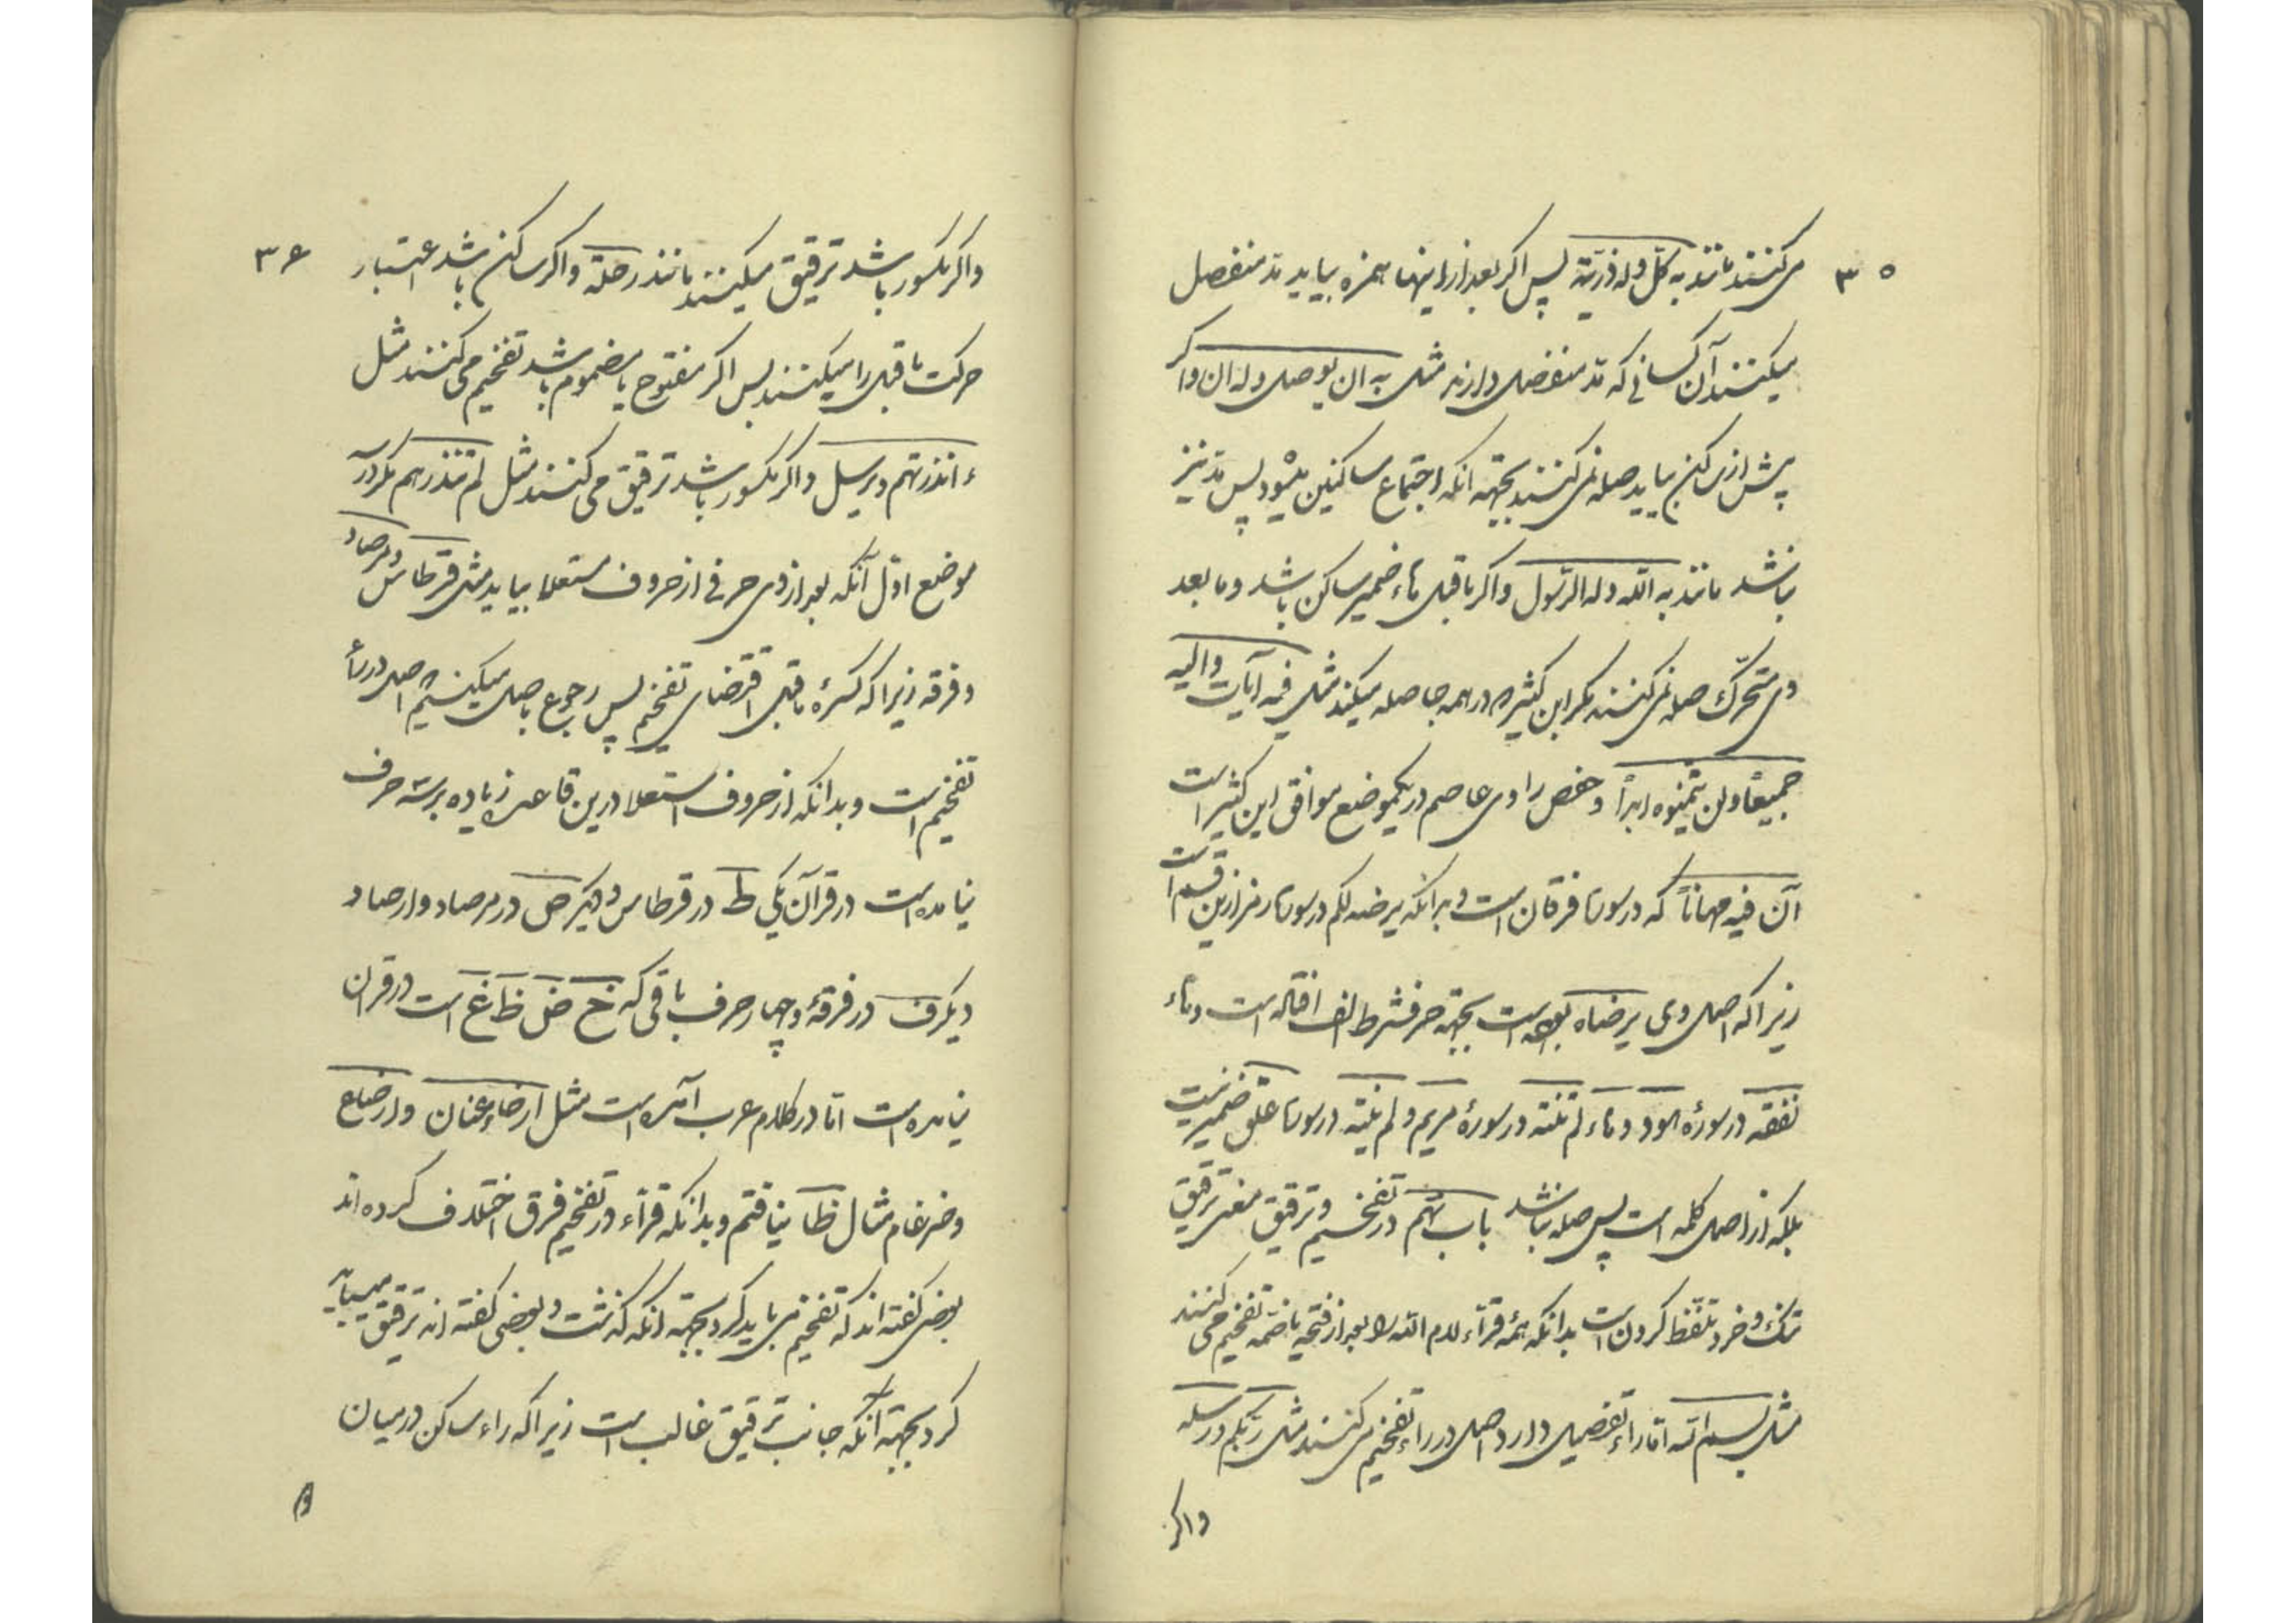 ۳۵
می‌کنند مانند به کل وله ذریّة پس اگر بعد از اینها همزه بیاید مد منفصل
میکنند آن کسانی که مد منفصل دارند مثل به ان یوصل وله ان واکر
پیش از ساکن بیاید صله نمی‌کنند بجهة انکه اجتماع ساکنین میشود پس مد نیز
نباشد مانند به الله وله الرسول واکر ماقبل هاء ضمیر ساکن باشد وما بعد
وی متحرّک صله نمی‌کنند مکر ابن کثیر که در همه جا صله میکند مثل فیه آیات والیه
جمیعًا ولن یتمنوه ابدًا وحفص راوی عاصم در یکموضع موافق ابن کثیر است
آن فیه مهانًا که در سورهٔ فرقان است وبدانکه یرضه لکم در سورهٔ زمر ازین قسم است
زیرا که اصل وی یرضاه بوده است بجهة حرف شرط الف افتاده است وهاء
نفقه در سورهٔ هود وهاء لم تنته در سورهٔ مریم ولم ینته در سورهٔ علق ضمیر نیست
بلکه از اصل کلمه است پس صله نباشد باب نهم در تفخیم وترقیق معنی ترقیق
تنک وخرد تلفّظ کردن است بدانکه همهٔ قرّاء لام الله را بعد از فتحه یا ضمه تفخیم می کنند
مثل بسم الله امّا راء تفصیل دارد اصل در راء تفخیم می کنند مثل ربّکم ورسله
واکر
۳۶
واکر مکسور باشد ترقیق میکنند مانند رحلة واکر ساکن باشد اعتبار
حرکت ماقبل را میکنند پس اکر مفتوح یا مضموم باشد تفخیم می کنند مثل
ءانذرتهم ویرسل واکر مکسور باشد ترقیق می کنند مثل لم تنذرهم مکر در
موضع اوّل آنکه بعد از وی حرفی از حروف مستعلا بیاید مثل قرطاس ومرصاد
وفرقه زیرا که کسرهٔ ماقبل اقتضای تفخیم پس رجوع باصل میکنیم اصل در راء
تفخیم است وبدانکه از حروف استعلا درین قاعده زیاده بر سه حرف
نیامده است در قرآن یکی ط در قرطاس ودیکر ص در مرصاد وارصاد
دیکر ق در فرقة وچهار حرف باقی که خ ض ظ غ است در قرآن
نیامده است امّا در کلام عرب آمده است مثل ارخاء عنان وارضاع
وضرغام مثال ظا نیافتم وبدانکه قرّاء در تفخیم فرق اختلاف کرده اند
بعضی کفته اند که تفخیم می باید کرد بجهة انکه کذشت وبعضی کفته اند ترقیق میباید
کرد بجهة آنکه جانب ترقیق غالب است زیرا که راء ساکن در میان